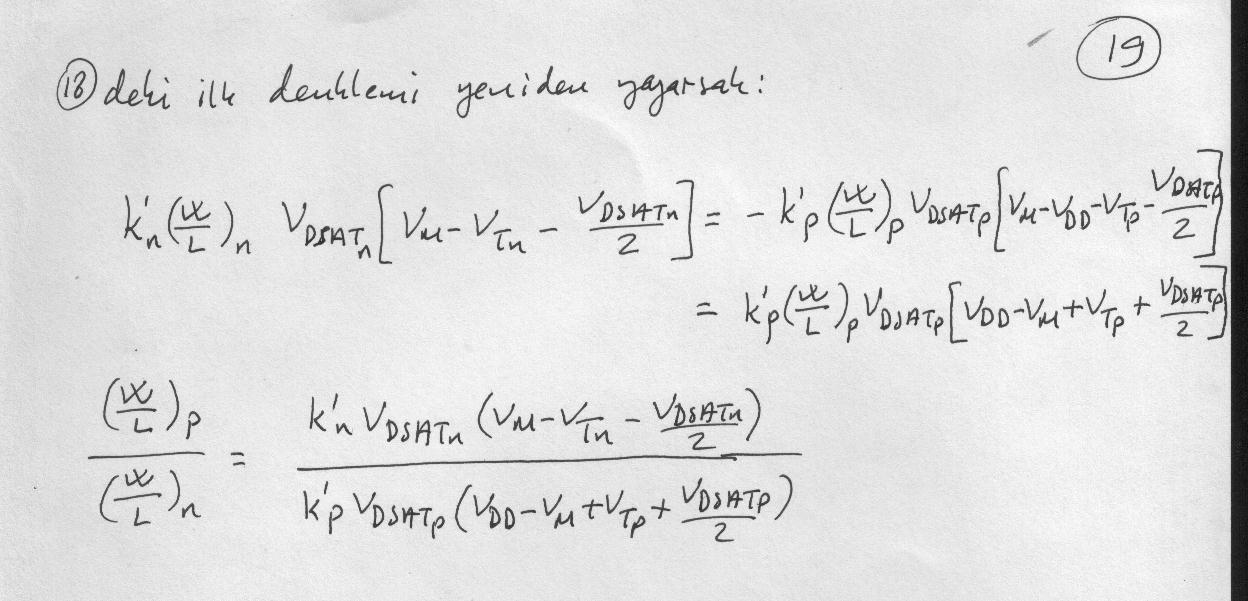 19
18 deki ilk denklemi yeniden yazarsak:
k'n (W/L)n VDSATn [VM - VTn - VDSATn/2] = - k'p (W/L)p VDSATp [VM - VDD - VTp - VDSATp/2]
= k'p (W/L)p VDSATp [VDD - VM + VTp + VDSATp/2]
(W/L)p / (W/L)n = k'n VDSATn (VM - VTn - VDSATn/2) / k'p VDSATp (VDD - VM + VTp + VDSATp/2)